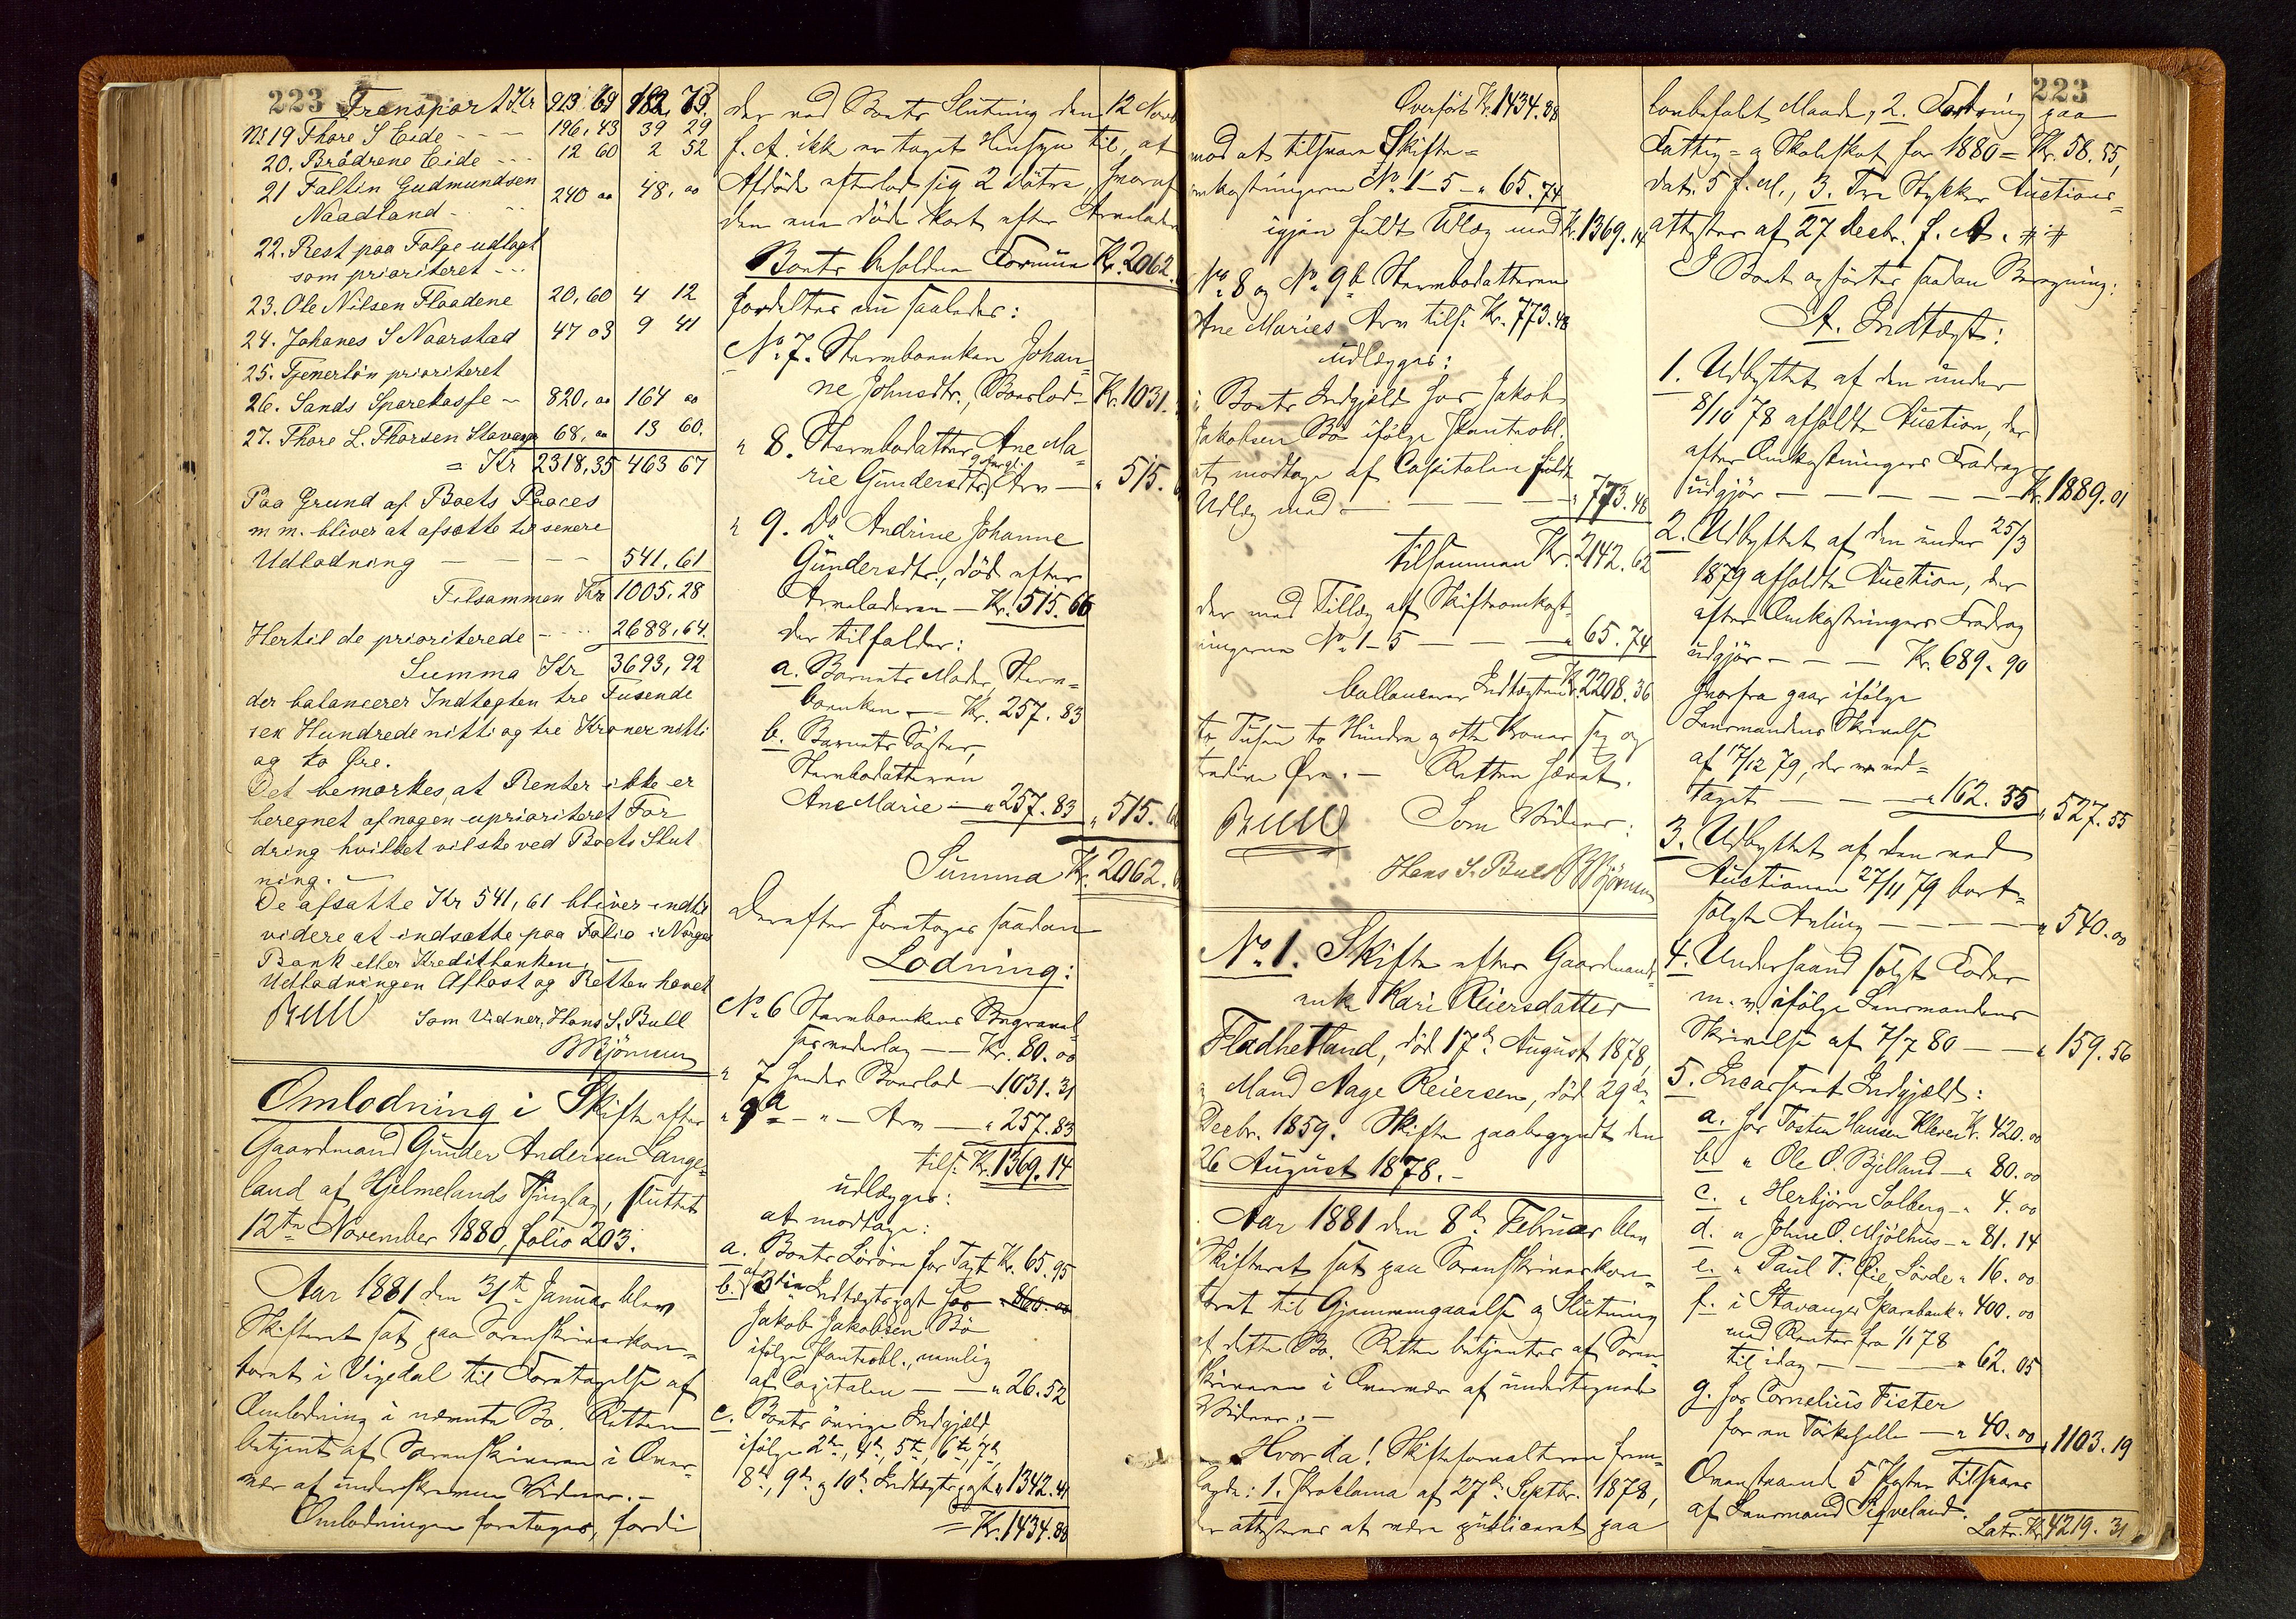 223 Transport Kr 913 69 182, 73.
No 19 Thore S Eide - - - 196, 43 39 29
20. Brødrene Eide - - - 12 60 2 52
21 Faltin Gudmundsen
Naadland - - - 240 00 48, 00
22. Rest paa Følge udlagt
som prioriteret - - -
23. Ole Nilsen Flaadene 20, 60 4 12
24. Johanes S Naarstad 47 03 9 41
25. Tjenerløn prioriteret
26. Sands Sparekasse - 820, 00 164 00
27. Thore L. Thorsen Stavanger 68, 00 13 60.
= Kr 2318, 35 463 67
Paa Grund af Boets Proces
m m. bliver at afsætte til senere
Udlodning - - - 541, 61
Tilsammen Kr 1005, 28
Hertil de prioriterede - - - 2688, 64.
Summa Kr 3693, 92
der balancerer Indtægten tre Tusende
sex Hundrede nitti og tre Kroner nitti
og to Øre.
Det bemærkes, at Renter ikke er
beregnet af nogen uprioriteret For
dring hvilket vil ske ved Boets Slut
ning. -
De afsatte Kr 541, 61 bliver indtil
videre at indsætte paa Folio i Norges
Bank eller Kreditbanken. -
Udlodningen Aflæst og Retten hævet
Bull Som Vidner, Hans S. Bull
B Bjørnsen
Omlodning i Skifte efter
Gaardmand Gunder Andersen Lange=
land af Hjelmelands Thinglag, sluttet
12te November 1880, folio 203.
Aar 1881 den 31te Januar blev
Skifteret sat paa Sorenskriverkon=
toret i Vigedal til Foretagelse af
Omlodning i nævnte Bo. Retten
betjent af Sorenskriveren i Over=
vær af underskrevne Vidner. -
Omlodningen foretages, fordi
der ved Boets Slutning den 12 Novb
f. A. ikke er taget Hensyn til, at
Afdøde efterlod sig 2 Døtre, hvoraf
den ene døde kort efter Arvelader
Boets beholdne Formue Kr. 2062.
fordeltes nu saaledes:
No 7. Stervboenken Johan=
ne Johnsdtr., Boeslod - Kr. 1031.
" 8. Stervbodatter Ane Ma=
rie Gundersdtr, Arv - " 515.
" 9. Do Andrine Johanne
Gundersdtr., død efter
Arveladeren - Kr. 515. 66
der tilfalder:
a. Barnets Moder, Sterv=
boenken - - Kr. 257. 83
b. Barnets Søster,
Stervbodatteren
Ane Marie - " 257. 83 " 515.
Summa Kr. 2062.
Derefter foretages saadan
Lodning:
No 6 Stervboenkens Begravel=
sesvederlag - - Kr. 80. 00
" 7 hendes Boeslod - " 1031. 31
" 9a - " - Arv - " 257. 83
tils. Kr. 1369. 14
udlægges:
at modtage:
a. Boets Løsøre for Taxt Kr. 65. 95
b. af 3die Indtægtspost hos 860. 00
Jakob Jakobsen Bø
ifølge Panteobl., nemlig
af Capitalen - - " 26. 52
c. Boets øvrige Indgjæld,
ifølge 2de, 4de, 5te, 6te, 7de,
8de, 9de og 10de Indtægtspost " 1342. 41
= Kr. 1434. 88
Overført Kr. 1434. 88
mod at tilsvare Skifte=
omkostningerne No 1-5 - " 65. 74
igjen fuldt Udlæg med Kr. 1369. 14
No 8 og No 9b Stervbodatteren
Ane Maries Arv tils. Kr. 773. 48
udlægges:
i Boets Indgjæld hos Jakob
Jakobsen Bø ifølge Panteobl.
at modtage af Capitalen fuldt
Udlæg med - - - - " 773. 48
tilsammen Kr. 2142. 62
der med Tillæg af Skifteomkost=
ningerne No 1-5 - - - " 65. 74
ballancerer Indtægten Kr. 2208. 36
to Tusen to Hundre og otte Kroner sex og
tredive Øre. - Retten hævet.
Bull Som Vidner:
Hans S. Bull B Bjørnsen
No. 1. Skifte efter Gaardmands=
enke Kari Reiersdatter
Fladhetland, død 17de August 1878,
og Mand Aage Reiersen, død 29de
Decbr. 1859. Skifte paabegyndt den
26 August 1878. -
Aar 1881 den 8de Februar blev
Skifteret sat paa Sorenskriverkon=
toret til Gjennemgaaelse og Slutning
af dette Bo. Retten betjentes af Soren=
skriveren i Overvær af undertegnede
Vidner. -
Hvorda! Skifteforvalteren frem=
lagde: 1. Proklama af 27de Septbr. 1878,
der attesteres at være publiceret paa
223
lovbefalet Maade, 2. Fordring paa
Fattig- og Skoleskat for 1880 = Kr. 58. 55,
dat. 5 f. M., 3. Tre Stykker Auctions=
attester af 27 Decbr. f. A.
I Boet opførtes saadan Beregning:
A. Indtægt:
1. Udbyttet af den under
8/10 78 afholdte Auction, der
efter Omkostningers Fradrag
udgjør - - - - - - Kr. 1889. 01
2. Udbyttet af den under 25/3
1879 afholdte Auction, der
efter Omkostningers Fradrag
udgjør - - - Kr. 689. 90
hvorfra gaar ifølge
Lensmandens Skrivelse
af 17/12 79, der er ved=
taget - - - " 162. 35 " 527. 55
3. Udbyttet af den ved
Auctionen 27/11 79 bort=
solgte Avling - - - - - " 540. 00
4. Underhaand solgt Foder
m. v. ifølge Lensmandens
Skrivelse af 7/7 80 - - " 159. 56
5. Incasseret Indgjæld:
a. hos Tosten Hansen Kleven Kr. 420. 00
b. " Ole O. Bjelland - " 80. 00
c. " Herbjørn Solberg - " 4. 00
d. " Johne O. Mjølhus - " 81. 14
e. " Paul T. Eie, Sørde " 16. 00
f. i Stavanger Sparebank " 400. 00
med Renter fra 1/1 78
til idag - - - - " 62. 05
g. hos Cornelius Tister
for en Tøkefelle - " 40. 00 " 1103. 19
Ovenstaaende 5 Poster tilsvares
af Lensmand Sigveland.
Latr. Kr. 4219. 31